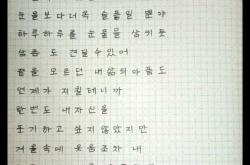 눈물보다 더욱 슬플 뿐야
하루하루를 눈물을 삼키듯
슬픔도 견딜 수 있어
끝을 모르던 내 삶의 아픔도
언제가 지칠테니까
한번도 내 자신을
포기하고 싶지 않았지만
겨울 속에 웃음조차 내